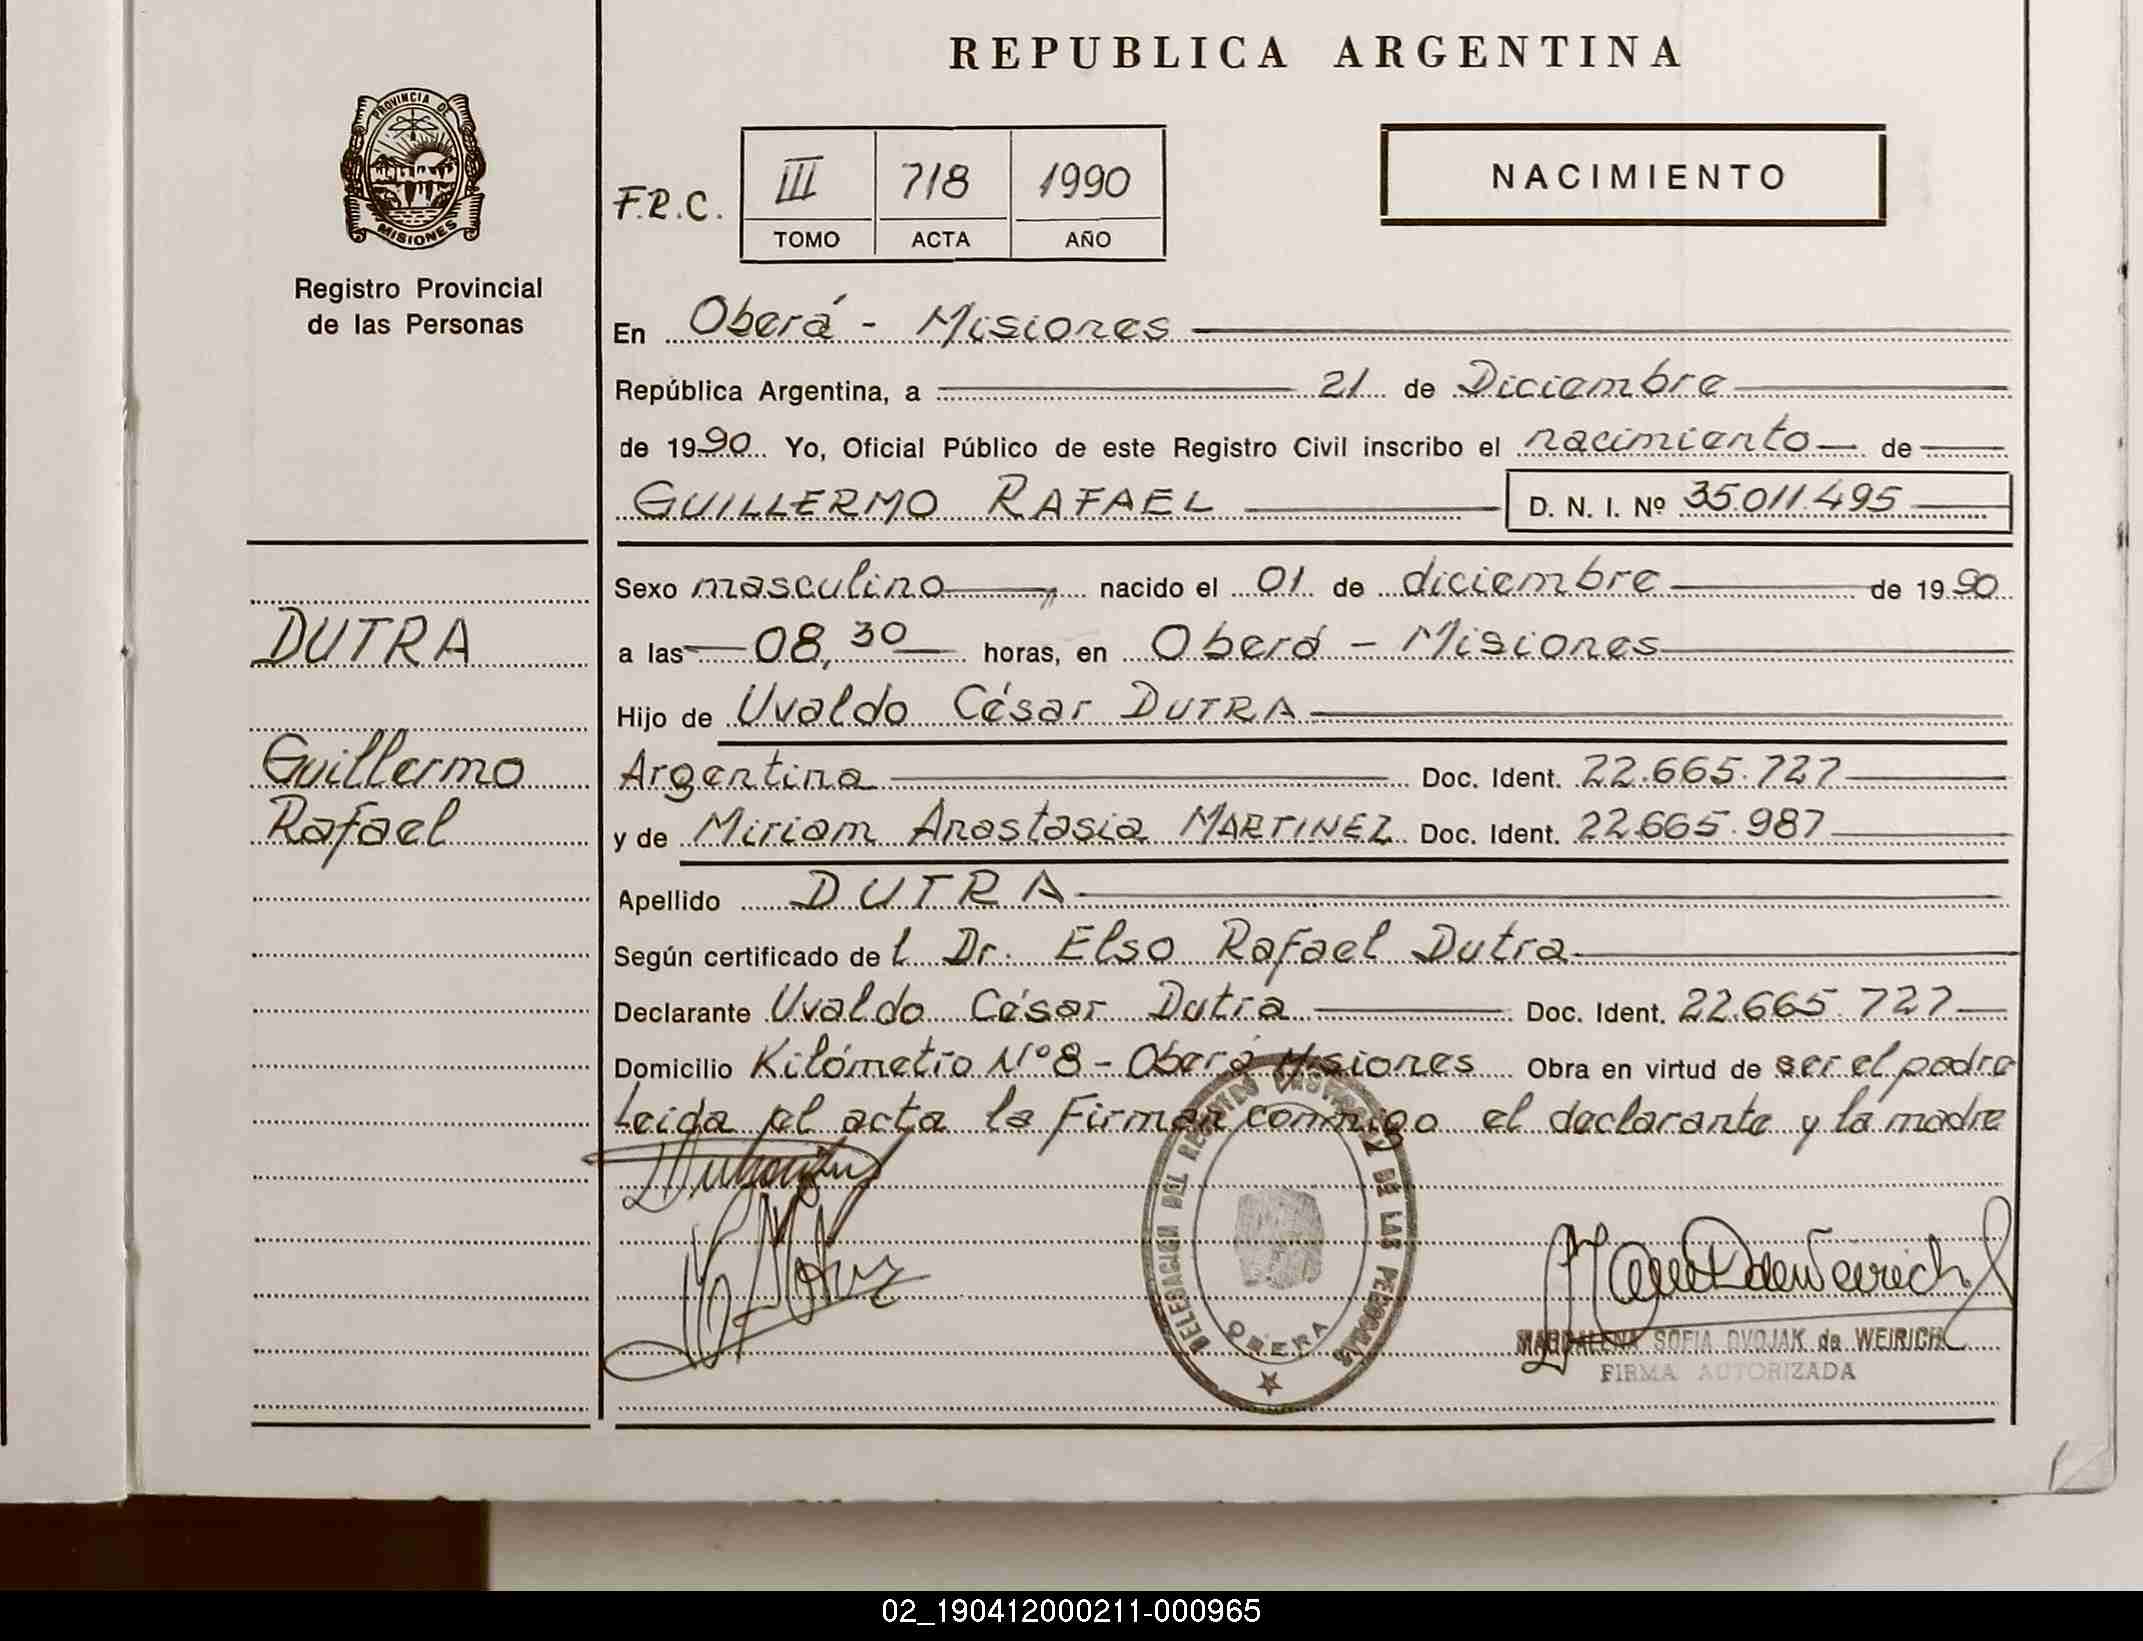 REPUBLICA ARGENTINA
PROVINCIA DE
MISIONES
Registro Provincial
de las Personas
NACIMIENTO
F.R.C.
III 718 1990
TOMO ACTA AÑO
En Oberá - Misiones
República Argentina, a 21 de Diciembre
de 1990 Yo, Oficial Público de este Registro Civil inscribo el nacimiento de
GUILLERMO RAFAEL D. N. I. Nº 35.011.495
Sexo masculino nacido el 01 de diciembre de 1990
a las 08,30 horas, en Oberá - Misiones
Hijo de Uvaldo César DUTRA
Argentina Doc. Ident. 22.665.727
y de Miriam Anastasia MARTINEZ Doc. Ident. 22.665.987
Apellido DUTRA
Según certificado del Dr. Elso Rafael Dutra
Declarante Uvaldo César Dutra Doc. Ident. 22.665.727
Domicilio Kilómetro Nº 8 - Oberá Misiones Obra en virtud de ser el padre
Leida el acta la firman conmigo el declarante y la madre
DUTRA
Guillermo
Rafael
DELEGACION DEL REGISTRO PROVINCIAL DE LAS PERSONAS
OBERA
MAGDALENA SOFIA DVOJAK de WEIRICH
FIRMA AUTORIZADA
02_190412000211-000965